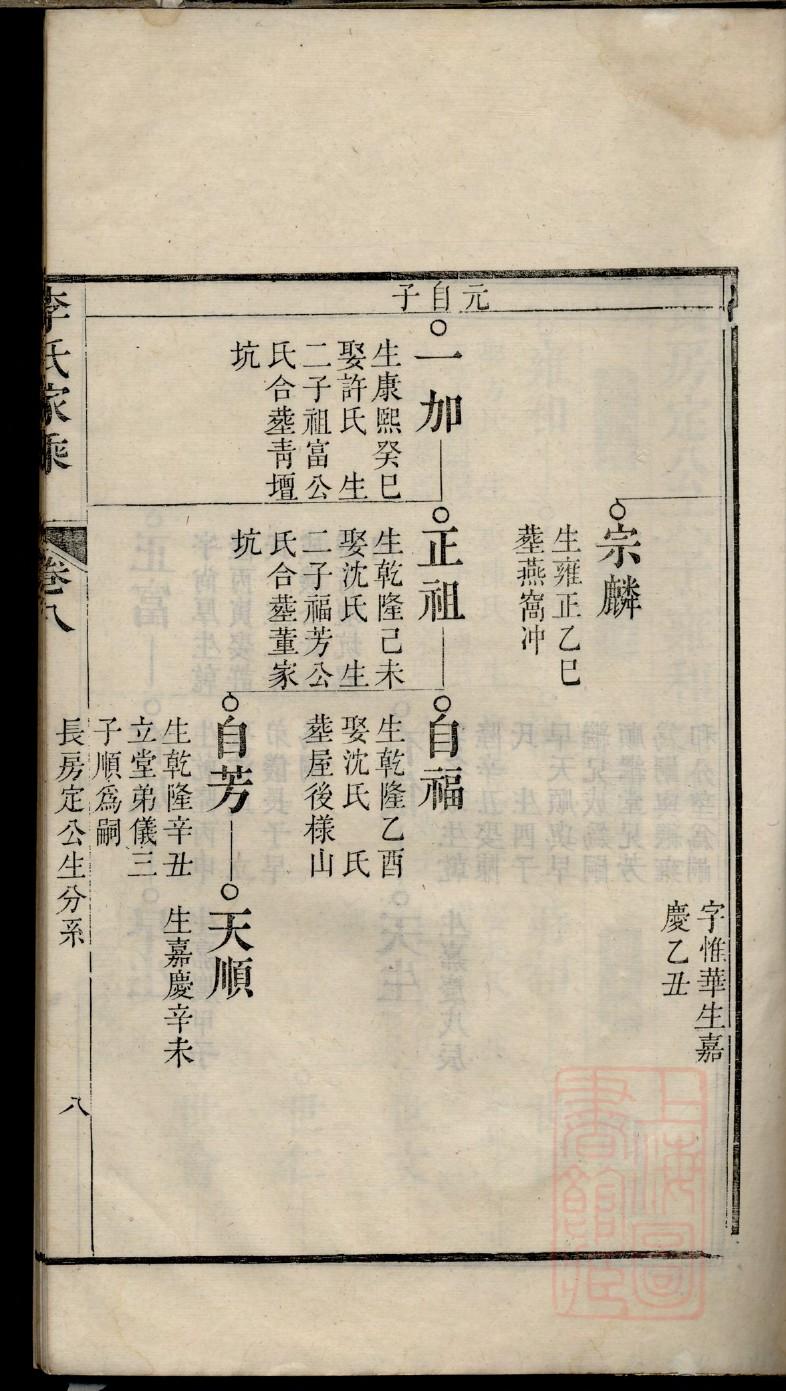 字惟華生嘉
慶乙丑
宗麟
生雍正乙巳
塟燕窩冲
元自子
一加
生康熙癸巳
娶許氏 生
二子祖富公
氏合塟靑壇
坑
正祖
生乾隆己未
娶沈氏 生
二子福芳公
氏合塟董家
坑
自福
生乾隆乙酉
娶沈氏 氏
塟屋後樣山
自芳
生乾隆辛丑
立堂弟儀三
子順爲嗣
天順
生嘉慶辛未
長房定公生分系
八
李氏家乘
卷八
上海圖書館藏